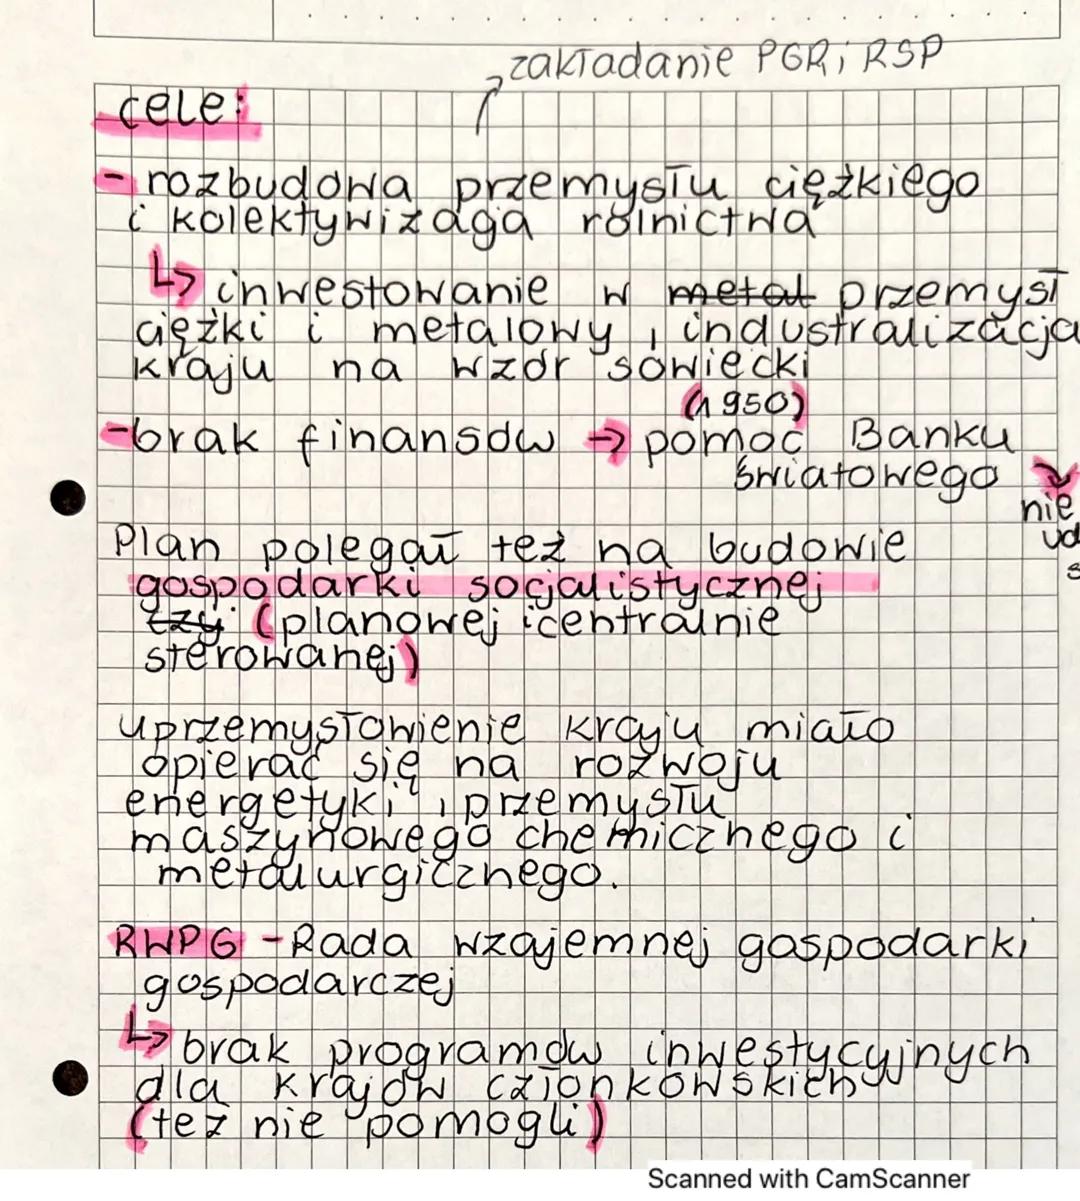 zakładanie PGR i RSP
cele:
- rozbudowa przemysłu ciężkiego
i kolektywizacja rolnictwa
↳ inwestowanie w metal przemysł
ciężki i metalowy, industralizacja
kraju na wzór sowiecki
(1950)
- brak finansów → pomoc Banku
Światowego
nie
Plan polegał też na budowie
gospodarki socjalistycznej
czy (planowej i centralnie
sterowanej)
uprzemysłowienie kraju miało
opierać się na rozwoju
energetyki, przemysłu
maszynowego chemicznego i
metalurgicznego.
RWPG - Rada wzajemnej gospodarki
gospodarczej
↳ brak programów inwestycyjnych
dla krajów członkowskich
(też nie pomogli)
Scanned with CamScanner